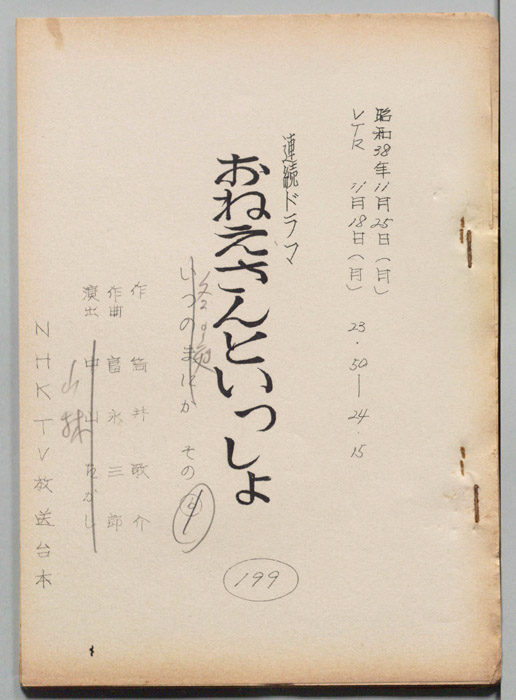 昭和38年11月25日(月)
VTR 11月18日(月) 23.50—24.15
連続ドラマ
おねえさんといっしょ
いつのまにか その
1
199
作 筒井敬介
作曲 冨永三郎
演出 中山たかし
小林
NHKTV放送台本